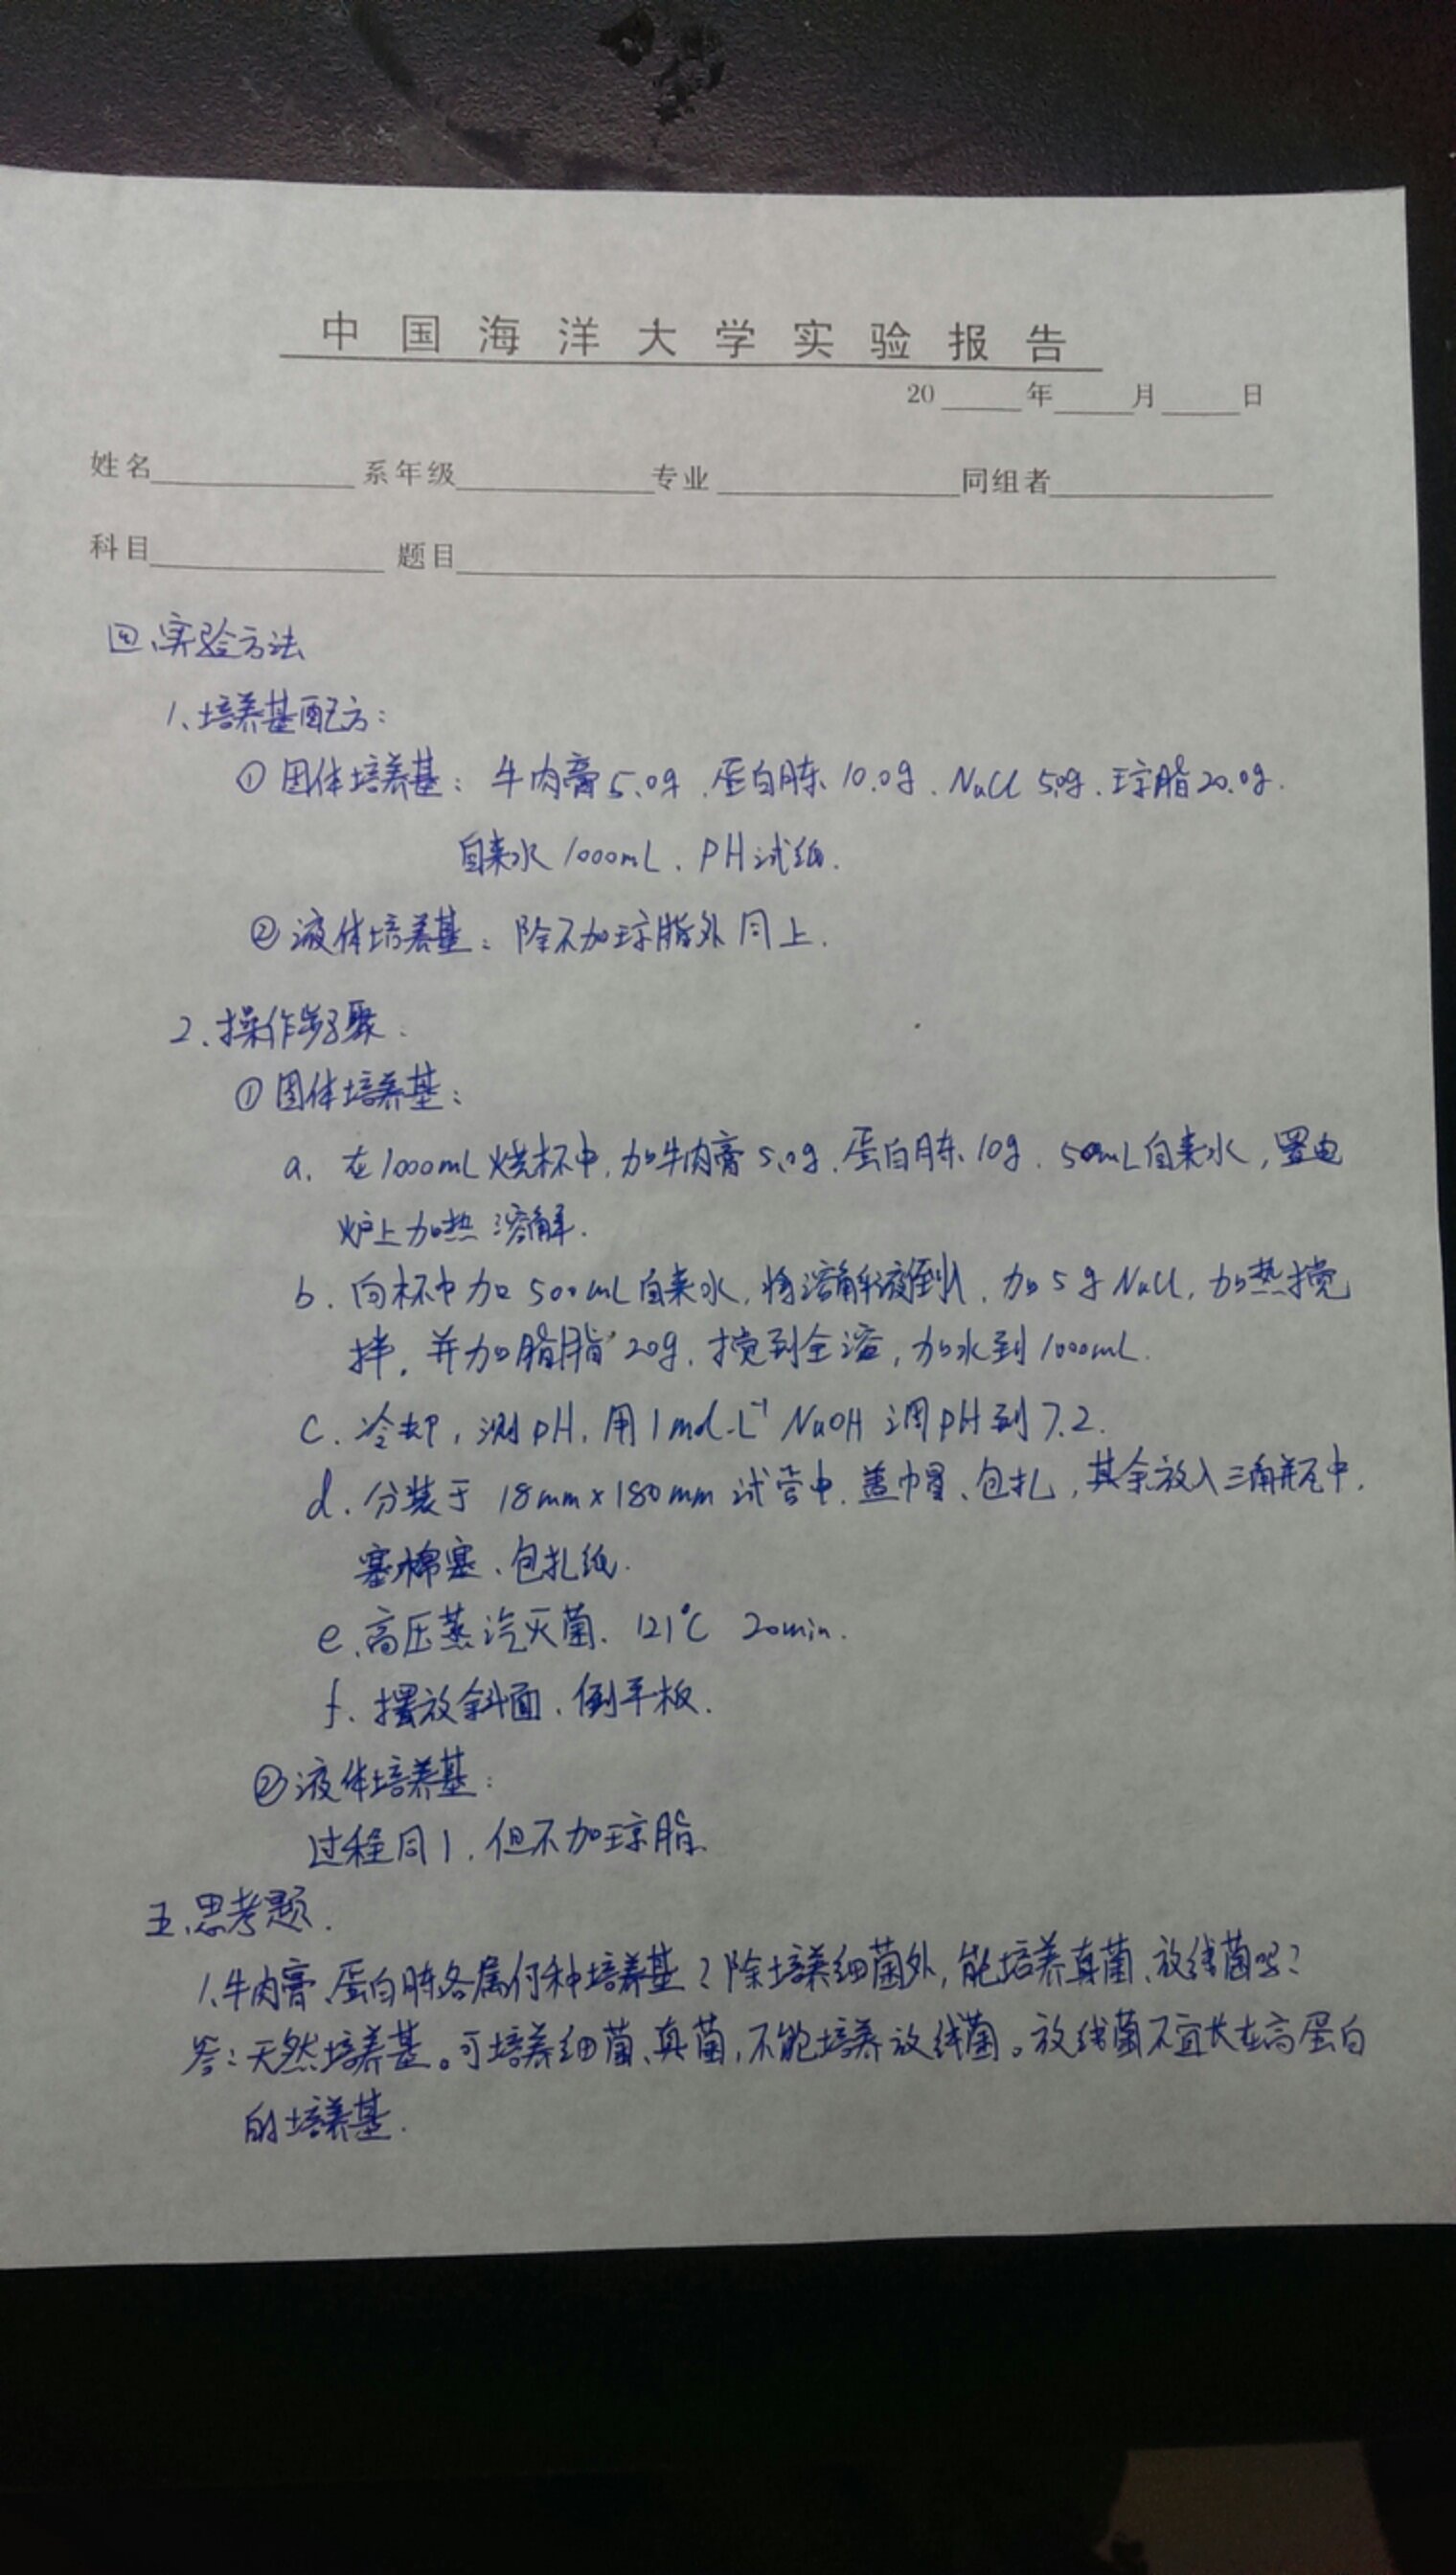 中国海洋大学实验报告
20____年____月____日
姓名____ 系年级____ 专业____ 同组者____
科目____ 题目____
四、实验方法
1、培养基配方：
① 固体培养基：牛肉膏5.0g、蛋白胨10.0g、NaCl 5.0g、琼脂20.0g.
自来水1000mL、PH试纸.
② 液体培养基：除不加琼脂外同上.
2、操作步骤：
① 固体培养基：
a. 在1000mL烧杯中,加牛肉膏5.0g、蛋白胨10g、50mL自来水,置电
炉上加热溶解.
b. 向杯中加500mL自来水,将溶解液倒入、加5g NaCl,加热搅
拌,并加脂20g,搅到全溶,加水到1000mL.
c. 冷却,测pH,用1mol·L⁻¹ NaOH调pH到7.2.
d. 分装于18mm×180mm试管中.盖帽、包扎,其余放入三角瓶中,
塞棉塞、包扎纸.
e、高压蒸汽灭菌. 121℃ 20min.
f. 摆放斜面、倒平板.
② 液体培养基：
过程同1,但不加琼脂.
五、思考题.
1、牛肉膏、蛋白胨各属何种培养基？除培养细菌外,能培养真菌、放线菌吗？
答：天然培养基。可培养细菌、真菌,不能培养放线菌。放线菌不宜长在高蛋白
的培养基.